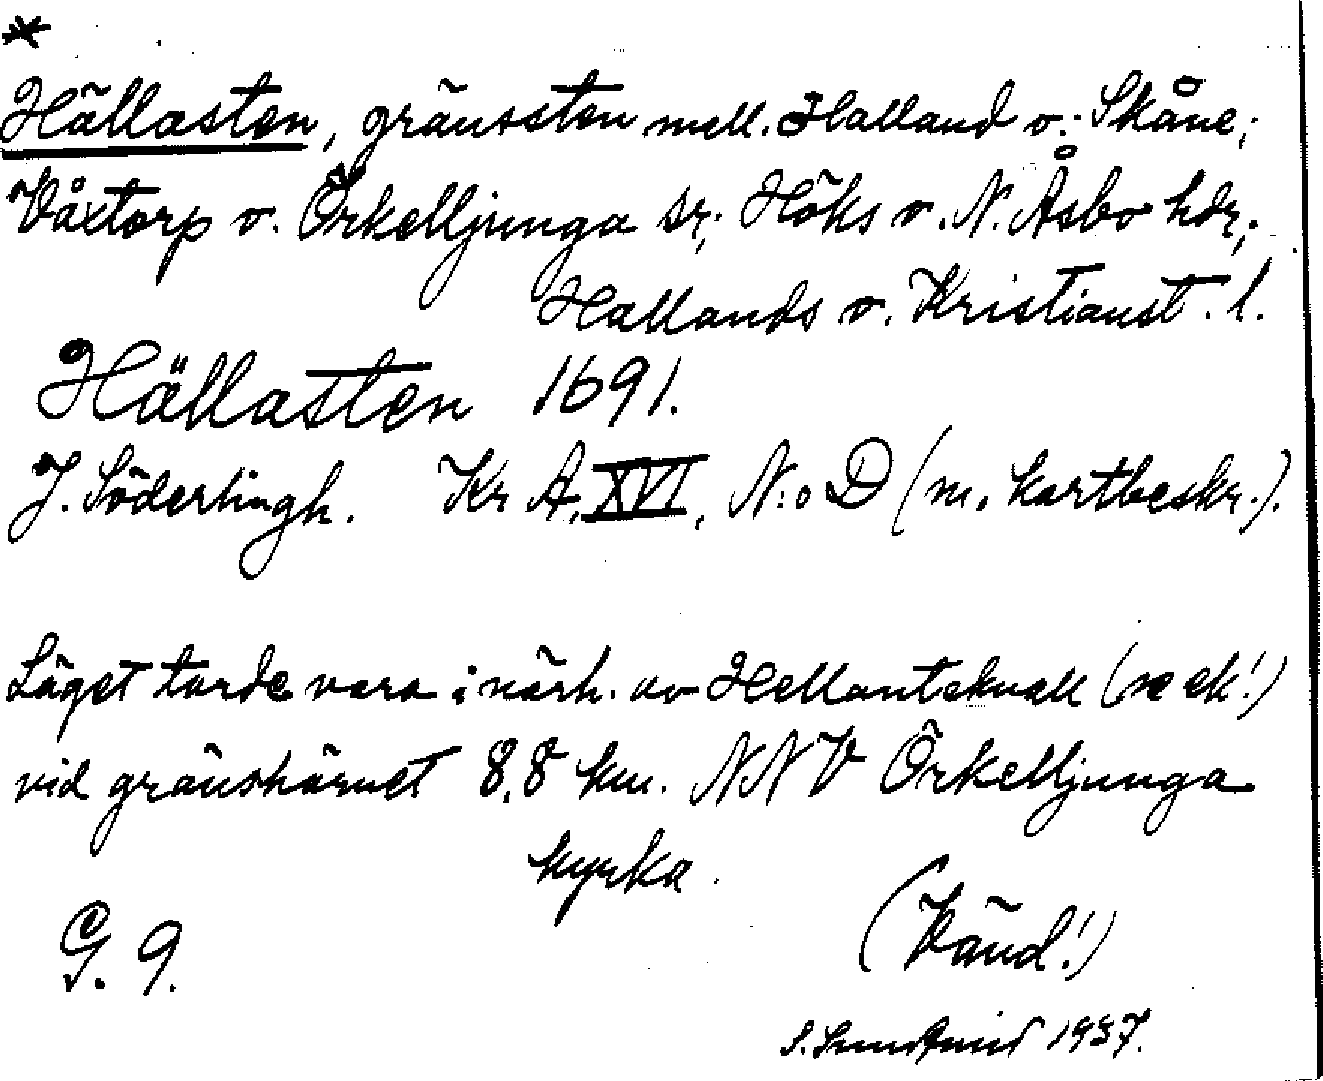 *
Hällasten, gränssten mell. Halland o. Skåne;
Våxtorp o. Örkelljunga sr; Höks o. N. Åsbo hdr;
Hallands o. Kristianst. l.
Hällasten 1691.
J. Söderlingh. Kr A, XVI, N:o D (m. kartbeskr.).
Läget torde vara i närh. av Hellantskvall (se ek!)
vid gränshörnet 8,8 km. NNV Örkelljunga
kyrka.
(Vänd!)
G. 9.
S. Sundqvist 1937.